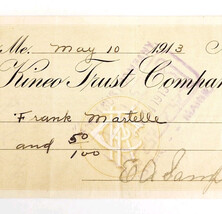 Me. May 10 1913
Kineo Trust Compan
Frank Martelle
and 50/100
EA Samp